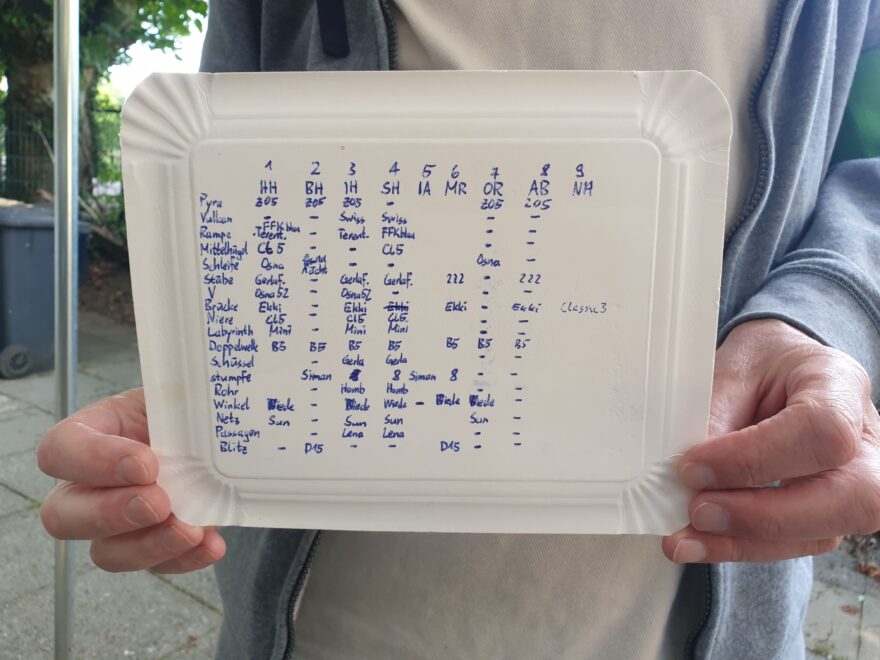 1 2 3 4 5 6 7 8 9
HH BH IH SH IA MR OR AB NH
Pyra Z05 Z05 Z05 - Z05 Z05
Vulkan - - Swiss Swiss - -
Rampe FFKblau Terent. - Terent. FFKblau - -
Mittelhügel CL5 - - CL5 - -
Schleife Osna Osna Nacht - - Osna -
Stäbe Gerlaf. - Gerlaf. Gerlaf. 222 - 222
V Osna52 - Osna52 - - -
Brücke Ekki - Ekki Ekki Ekki - Ekki Classic3
Niere CL5 - CL5 CL5 - -
Labyrinth Mini - Mini Mini - -
Doppelwelle B5 B5 B5 B5 B5 B5 B5
Schüssel - Gerla Gerla - -
stumpfe Siman 8 8 Siman 8 - -
Rohr - Homb Homb - -
Winkel Wiede - Wiede Wiede - Wiede Wiede -
Netz Sun - Sun Sun Sun -
Passagen - Lena Lena - -
Blitz - D15 - - D15 - -